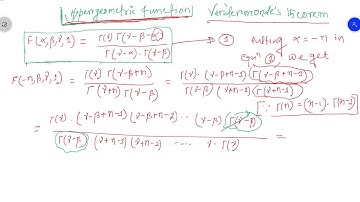 Hypergeometric function Vandermonde's theorem
F(α,β,γ,1) = Γ(γ) Γ(γ-β-α) / Γ(γ-α)·Γ(γ-β) → ① Putting α=-n in
eqⁿ ① we get
F(-n,β,γ,1) = Γ(γ) Γ(γ-β+n) / Γ(γ+n) Γ(γ-β) = Γ(γ)·(γ-β+n-1) Γ(γ-β+n-1) / Γ(γ-β) (γ+n-1) Γ(γ+n-1)
[∵ Γ(n) = (n-1)·Γ(n-1)]
= Γ(γ)·(γ-β+n-1)(γ-β+n-2)··· (γ-β) Γ(γ-β) / Γ(γ-β) (γ+n-1)(γ+n-2) ···· γ·Γ(γ) =